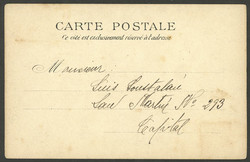 CARTE POSTALE
Ce côté est exclusivement réservé à l'adresse
Monsieur
Luis
San Martin No. 293
Capital